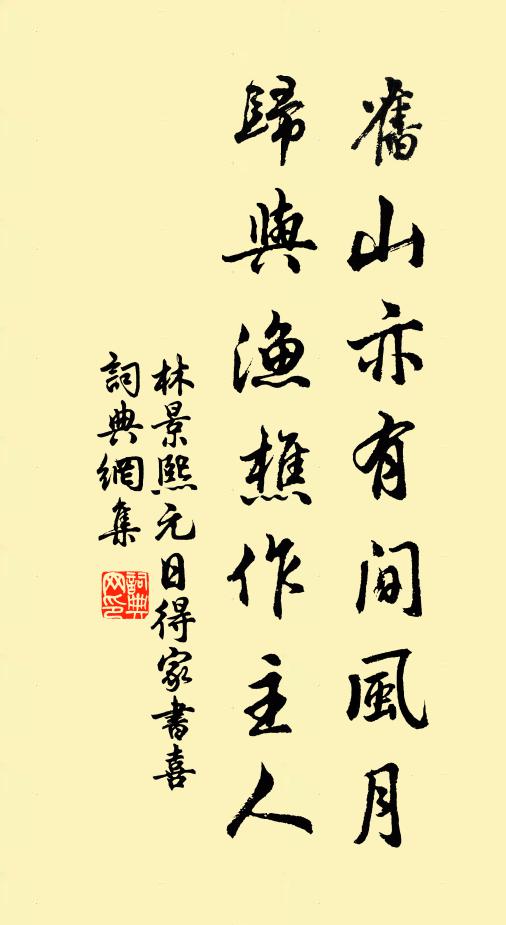 舊山亦有間風月
歸與漁樵作主人
林景熙元日得家書喜
詞典網集
詞典網印